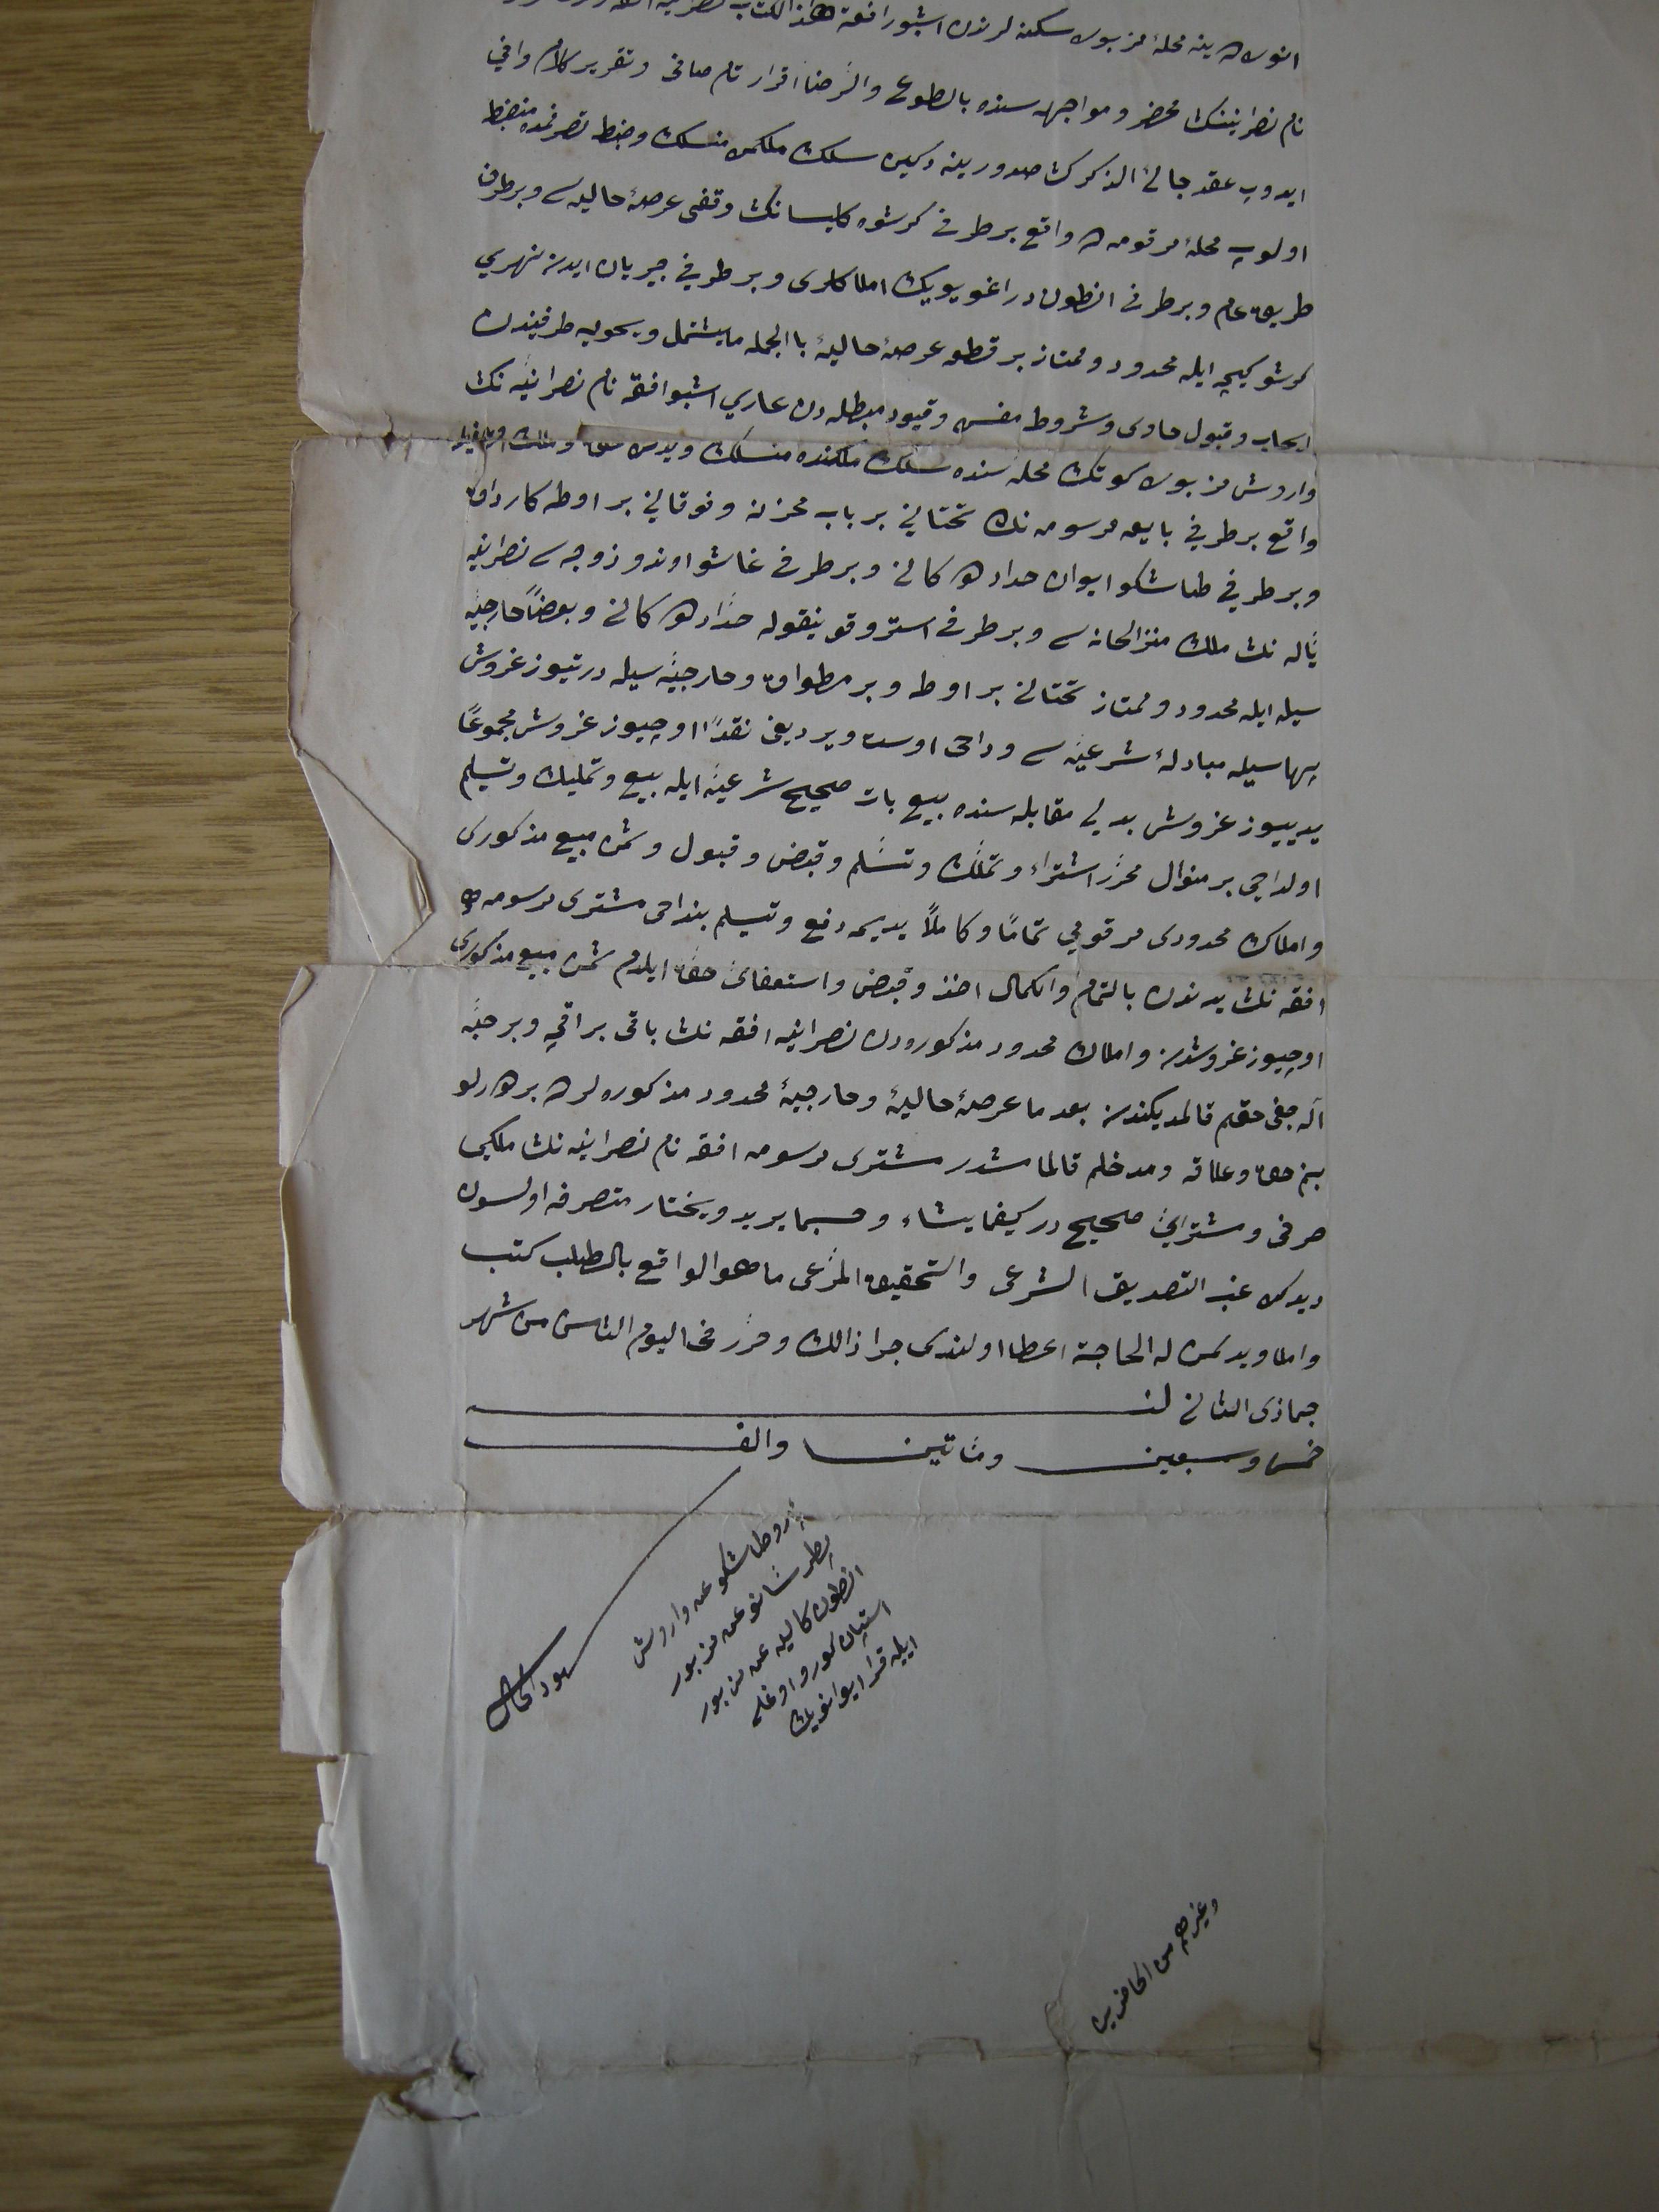 اولان ینه محلهٔ مزبوره سکنه لرندن اشبو رافعة هذا الکتاب
نام نصرانیه‌نك محضر و مواجهه سنده بالطوع والرضا اقرار تام صافی و تقریر کلام وافی
ایدوب عقد جائی الذکرك صدورینه دکین سلك ملکمده منسلك و ضبط تصرفمده منضبط
اولوب محلهٔ مرقومه ده واقع بر طرفی کرشوه کلیسانك وقفی عرصهٔ خالیه سی و بر طرفی
طریق عام و بر طرفی انطون دراغویویك املاکلری و بر طرفی جریان ایدن نهری
کرشو کیچه ایله محدود و ممتاز بر قطعه عرصهٔ خالیهٔ با الجمله ما یشتمل و یحویه طرفیندن
ایجاب و قبولی حاوی و شروط مفسده و قیود مبطله دن عاری اشبو افقه نام نصرانیه نك
واروش مزبوره کوتك محله سنده سلك ملکنده منسلك و
واقع بر طرفی بایعه مرسومه نك تحتانی بر باب مخزن و فوقانی بر اوطه
و بر طرفی طاشکو ایوان حداد دکانی و بر طرفی غاشو اوندو زوجه سی نصرانیه
یاله نك ملك منزلخانه سی و بر طرفی استروقو نیقوله حداد دکانی و بعضًا خارجیه
سیله ایله محدود و ممتاز تحتانی بر اوطه و بر مطواق و خارجیه سیله درتیوز غروش
بهاسیله مبادلهٔ شرعیه سی و داخی اوست ویردیغی نقدًا اوچیوز غروش مجموعًا
یدییوز غروش بدلی مقابله سنده بیع بات صحیح شرعیه ایله بیع و تملیك و تسلیم
اولداخی بر منوال محرر اشتراء و تملك و تسلم و قبض و قبول و ثمن مبیع مذکوری
و املاك محدودی مرقومی تمامًا و کاملًا یدیمه دفع و تسلیم بنداخی مشتری مرسومه
افقه نك یدندن بالتمام والکمال اخذ و قبض و استیفای حق ایلدم ثمن مبیع مذکوری
اوچیوز غروشدن و املاك محدود مذکوره دن نصرانیه افقه نك باقی بر اقچه و بر حبه
اله جغی حقم قالمدیکندن بعد ما عرصهٔ خالیهٔ و خارجیهٔ محدود مذکوره لرده بر درلو
بنم حق و علاقه و مدخلم قالمامشدر مشتری مرسومه افقه نام نصرانیه نك ملکی
صرفی و مشترای صحیحدر کیفما یشاء و حسبما یرید و یختار متصرفه اولسون
دیدکده غب التصدیق الشرعی والتحقیق المرعی ما هو الواقع بالطلب کتب
و املا ویدلمن له الحاجة اعطا اولندی جرا ذالك و حرر فی الیوم الثامن من شهر
جمادی الثانی لسنه
خمس و سبعین و مأتین و الف
شهود الحال
طاشکو عن واروش
پطر شانو عن مزبور
انطون کالیه عن مزبور
استپان کورو اوغلی
ایله قرا ایوانویك
و غیرهم من الحاضرین